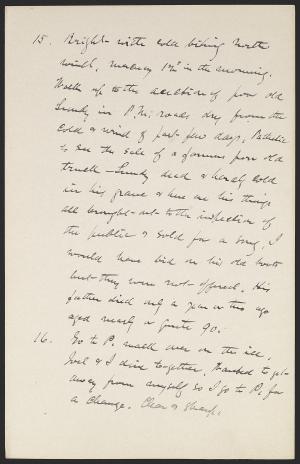 15. Bright with cold biting North
wind, mercury 12° in the morning.
Walk up to the auction of poor old
Lundy in P. roads dry from the
cold & wind of past few days. Pathetic
to see the sale of a famous poor old
truck — Lundy dead & hardly cold
in his grave & here are his things
all brought out to the inspection of
the public & sold for a song. I
would have bid on his old boots
but they were not offered. His
father died only a year or two ago
aged nearly or quite 90.
16. Go to P. walk over on the ice,
Joel & I dine together. Wanted to get
away from myself so I go to P. for
a change. Clear & sharp.